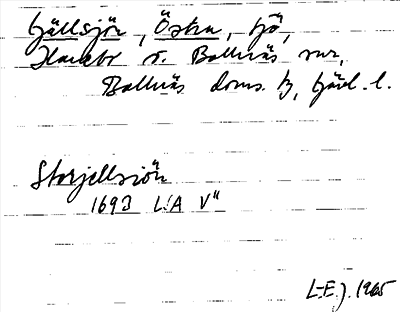 Gällsjön, Östra, sjö,
Hanebo o. Bollnäs snr,
Bollnäs doms. h, Gävl. l.
Storjellsiön
1693 LA V"
L-E. J. 1965